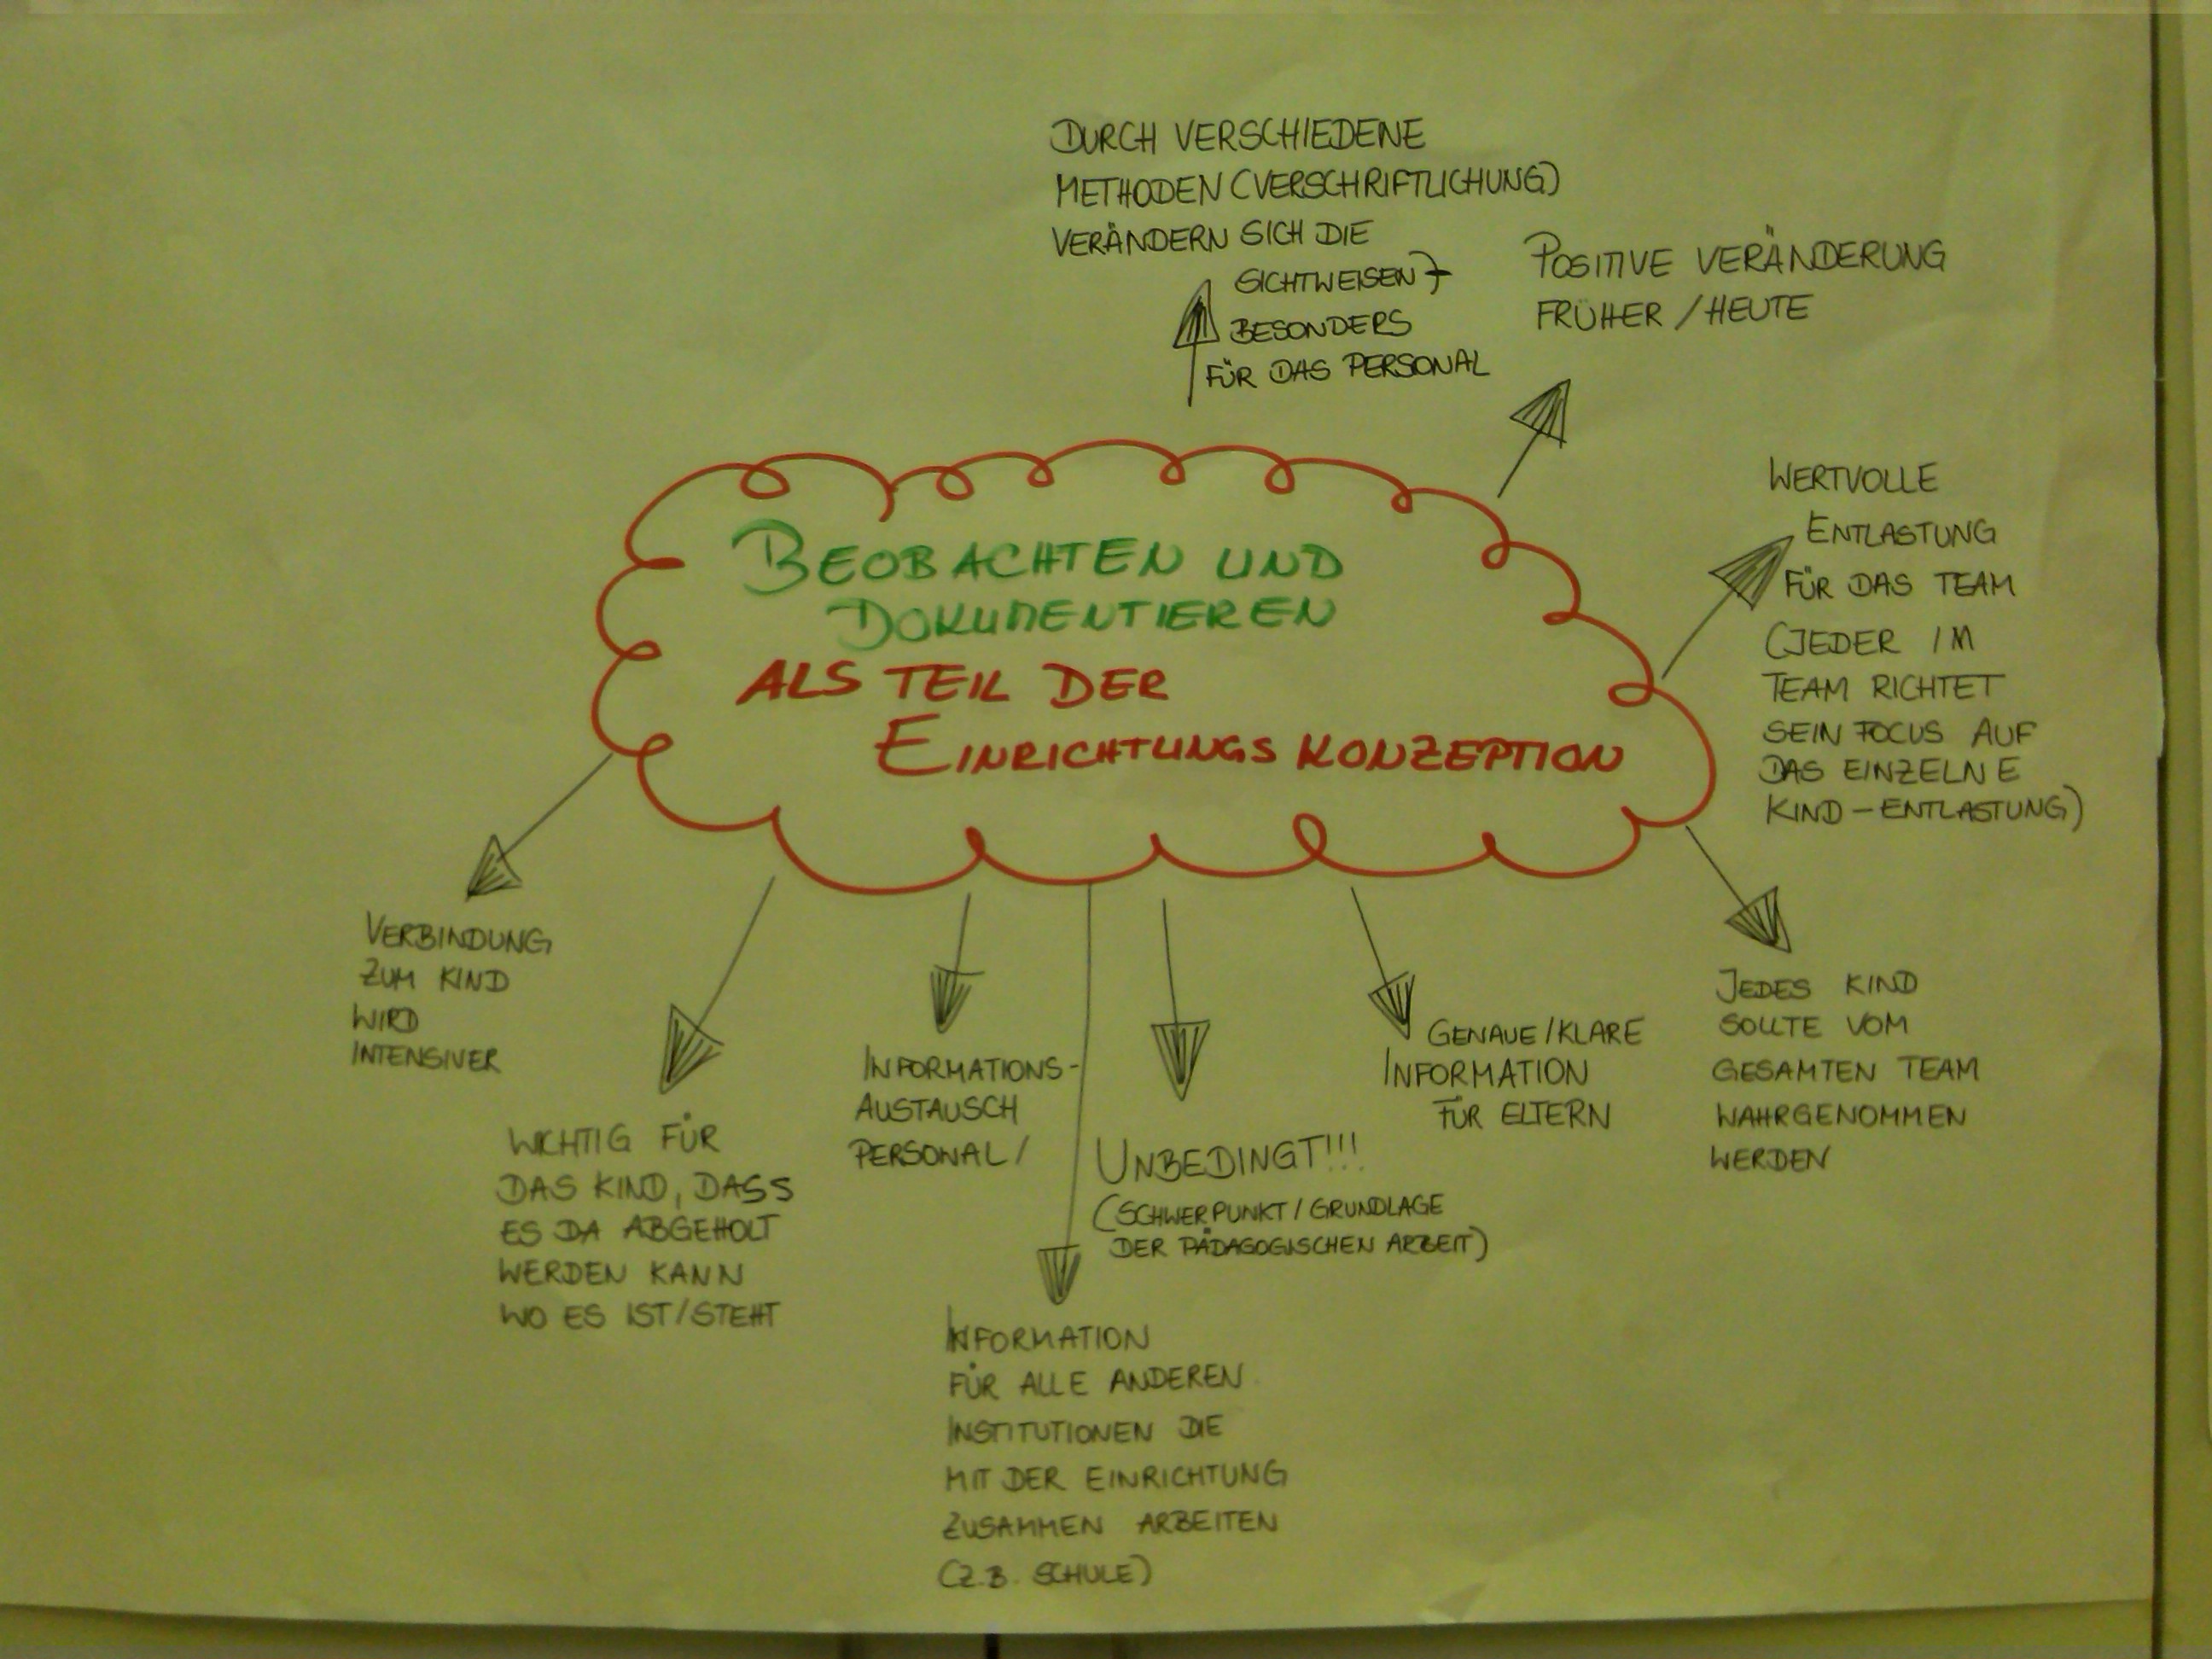 DURCH VERSCHIEDENE
METHODEN (VERSCHRIFTLICHUNG)
VERÄNDERN SICH DIE
SICHTWEISEN →
BESONDERS
FÜR DAS PERSONAL
POSITIVE VERÄNDERUNG
FRÜHER / HEUTE
WERTVOLLE
ENTLASTUNG
FÜR DAS TEAM
(JEDER IM
TEAM RICHTET
SEIN FOCUS AUF
DAS EINZELNE
KIND - ENTLASTUNG)
BEOBACHTEN UND
DOKUMENTIEREN
ALS TEIL DER
EINRICHTUNGSKONZEPTION
VERBINDUNG
ZUM KIND
WIRD
INTENSIVER
WICHTIG FÜR
DAS KIND, DASS
ES DA ABGEHOLT
WERDEN KANN
WO ES IST/STEHT
INFORMATIONS-
AUSTAUSCH
PERSONAL /
INFORMATION
FÜR ALLE ANDEREN
INSTITUTIONEN DIE
MIT DER EINRICHTUNG
ZUSAMMEN ARBEITEN
(Z.B. SCHULE)
UNBEDINGT!!!
(SCHWERPUNKT / GRUNDLAGE
DER PÄDAGOGISCHEN ARBEIT)
GENAUE/KLARE
INFORMATION
FÜR ELTERN
JEDES KIND
SOLLTE VOM
GESAMTEN TEAM
WAHRGENOMMEN
WERDEN